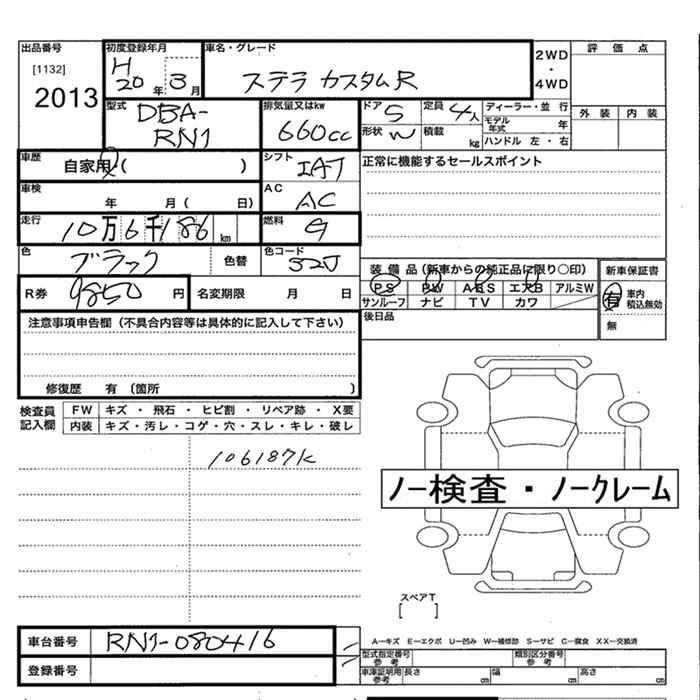 出品番号 初度登録年月 車名・グレード 2WD・4WD 評価点
[1132] H
2013 20年 3月 ステラ カスタムR
外装 内装
型式 DBA-RN1 排気量又はkw 660cc ドア 5 定員 4人 ディーラー・並行
モデル年式 年
形状 W 積載 kg ハンドル 左・右
車歴 自家用・( ) シフト IAT 正常に機能するセールスポイント
車検 年 月( 日) AC AC
走行 10万6千186km 燃料 G
色 ブラック 色替 色コード 32J
装備品(新車からの純正品に限り〇印) 新車保証書
PS PW ABS エアB アルミW 有 車内積込無効
サンルーフ ナビ TV カワ 無
R券 9850円 名変期限 月 日
後日品
注意事項申告欄(不具合内容等は具体的に記入して下さい)
修復歴 有 (箇所 )
検査員記入欄 FW キズ・飛石・ヒビ割・リペア跡・X要
内装 キズ・汚レ・コゲ・穴・スレ・キレ・破レ
106187K
ノー検査・ノークレーム
スペアT
[ ]
A―キズ E―エクボ U―凹み W―補修跡 S―サビ C―腐食 XX―交換済
車台番号 RN1-080416
登録番号
型式指定番号 参考 類別区分番号 参考
車庫証明用 参考 長さ cm 幅 cm 高さ cm